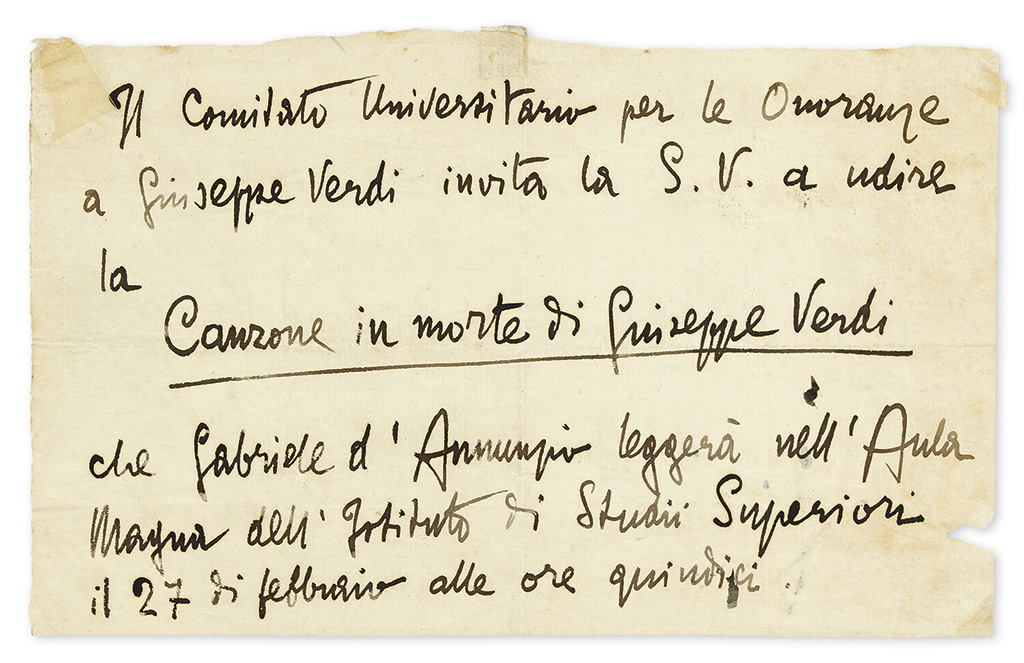 Il Comitato Universitario per le Onoranze
a Giuseppe Verdi invita la S. V. a udire
la
Canzone in morte di Giuseppe Verdi
che Gabriele d'Annunzio leggerà nell'Aula
Magna dell'Istituto di Studii Superiori
il 27 di febbraio alle ore quindici.